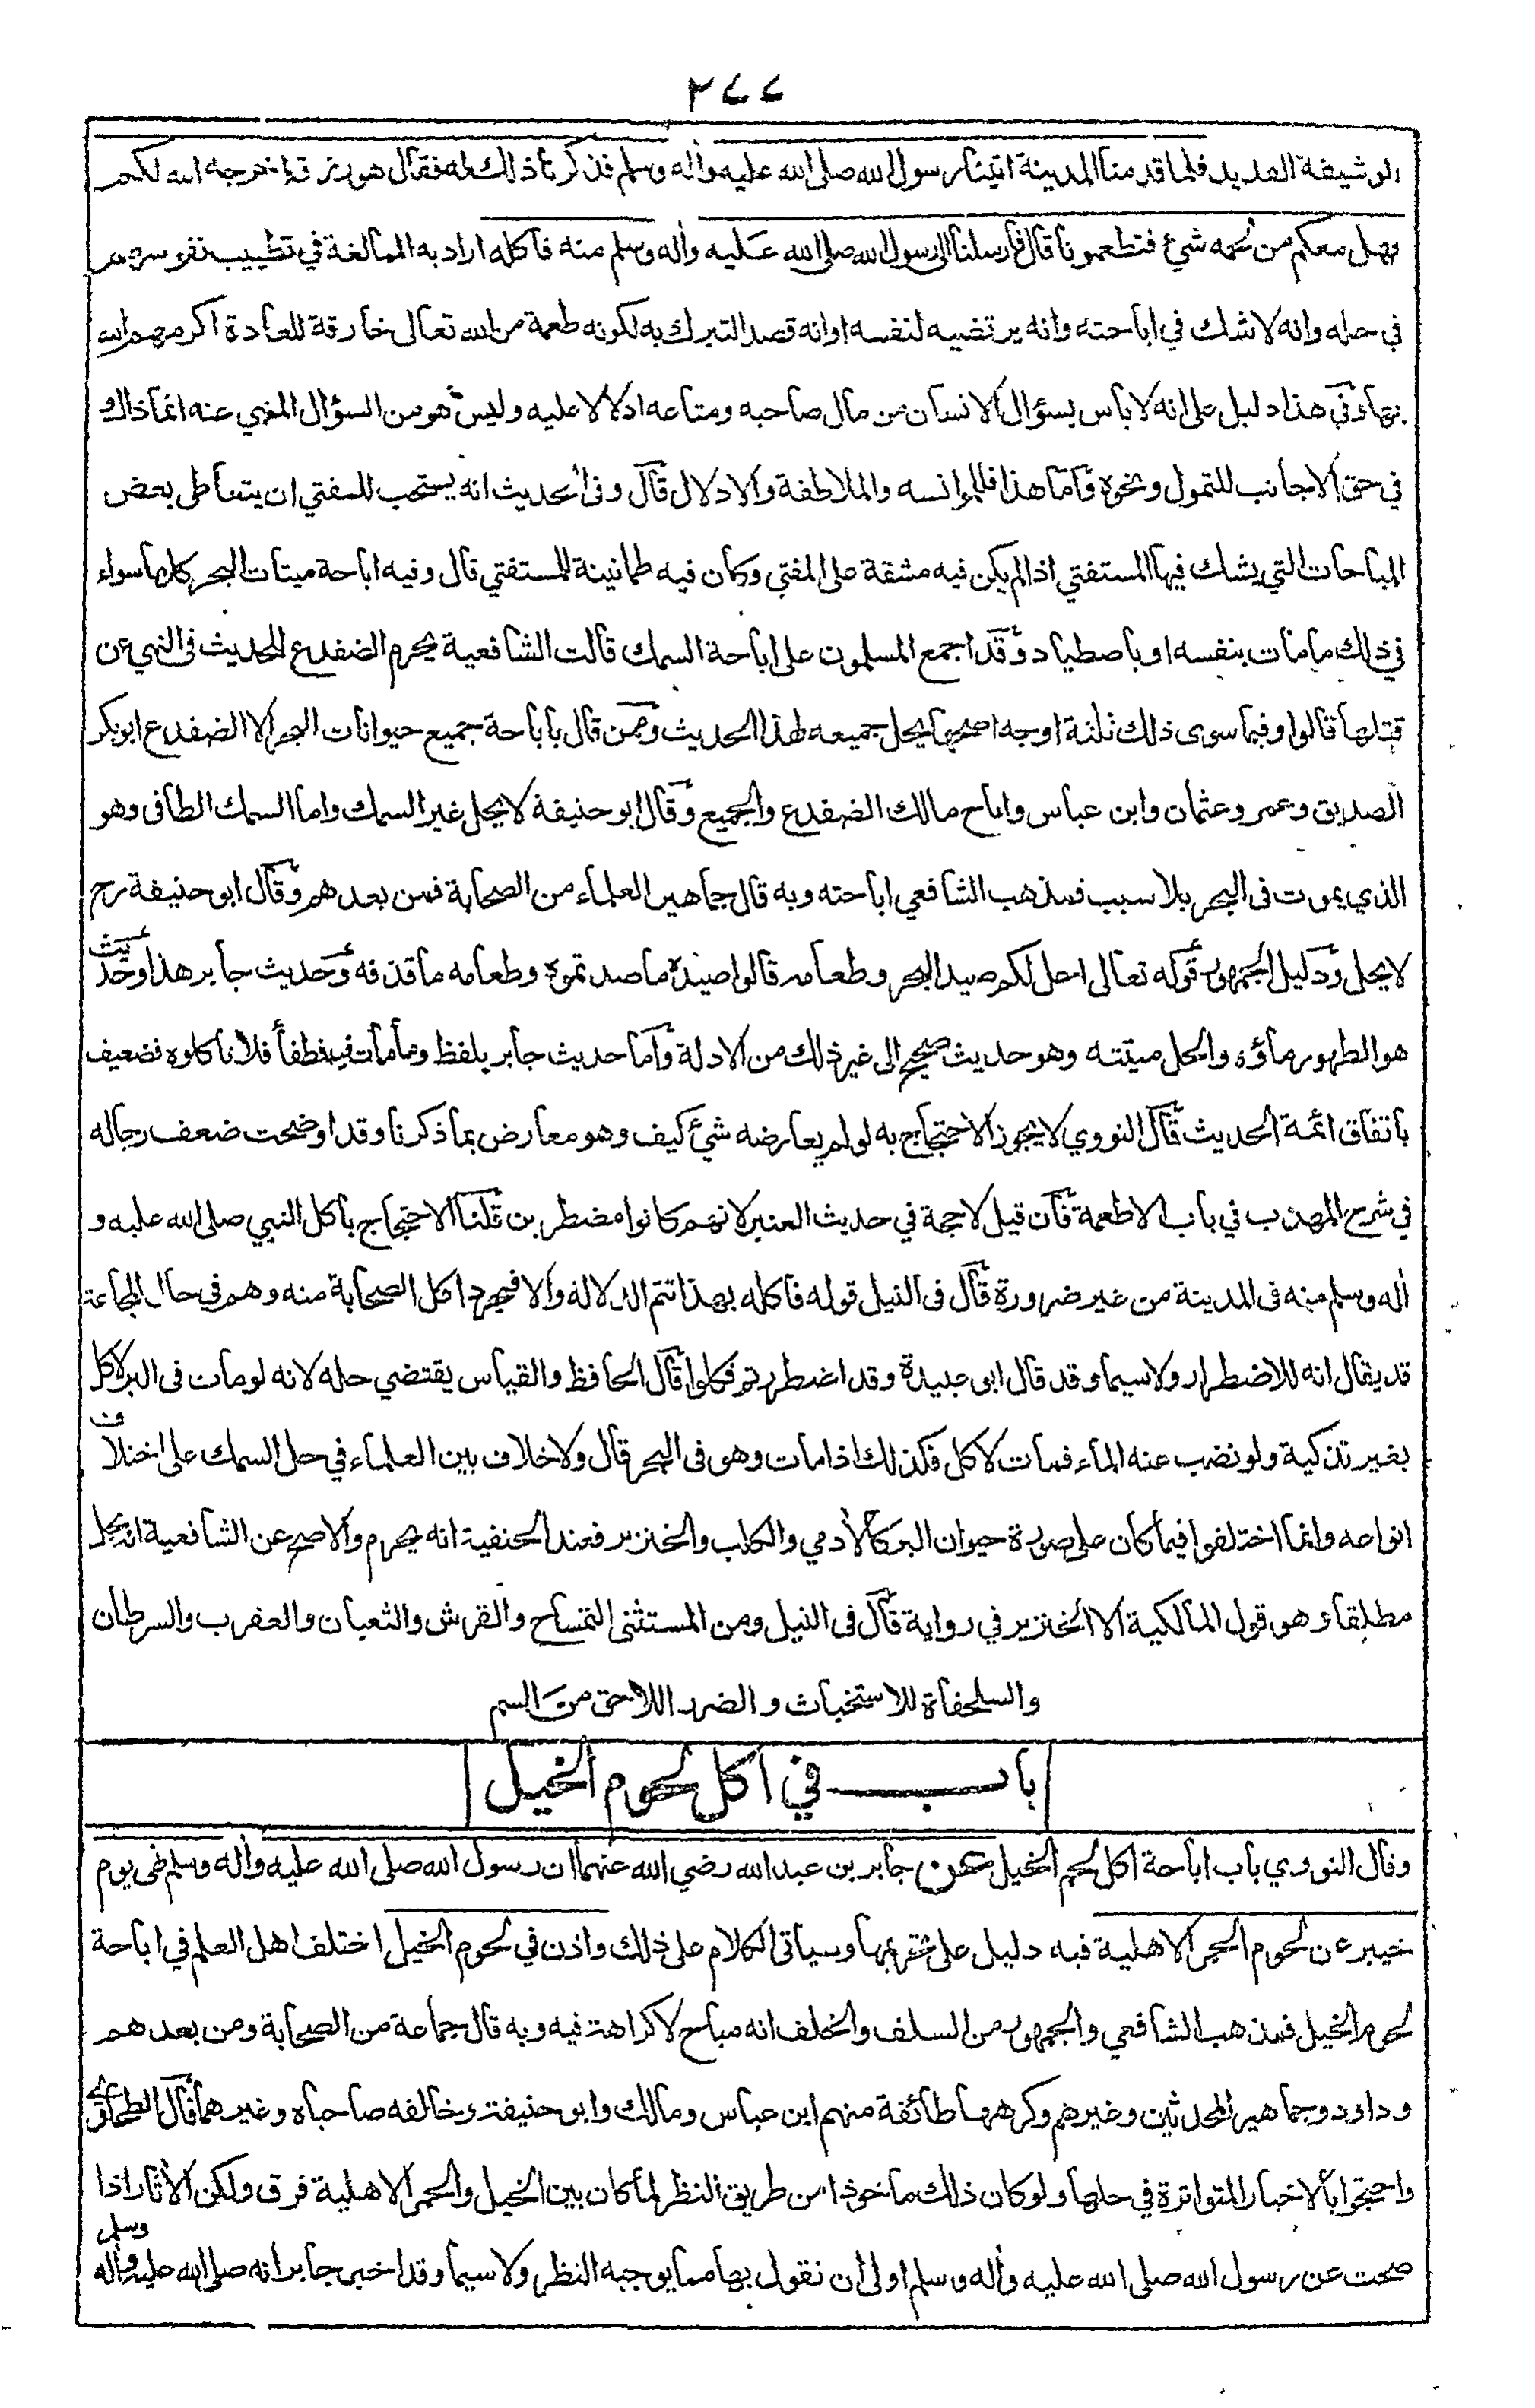 ٢٤٤
الوشيقة القديد فلما قدمنا المدينة اتينا رسول الله صلى الله عليه وأله وسلم فذكرنا ذلك له فقال هو رزق اخرجه الله لكم
فهل معكم من لحمه شئ فتطعمونا قال فارسلنا الى رسول الله صلى الله عليه وأله وسلم منه فاكله اراد به المبالغة في تطييب نفوسهم
في حله وانه لا شك في اباحته وانه يرتضيه لنفسه او انه قصد التبرك به لكونه طعمة من الله تعالى خارقة للعادة اكرمهم الله
بها وفى هذا دليل على انه لا بأس بسؤال الانسان من مال صاحبه ومتاعه ادلالا عليه وليس هو من السؤال المنهي عنه انما ذاك
في حق الاجانب للتمول ونحوه واما هذا فللموانسه والملاطفة والادلال قال وفى الحديث انه يستحب للمفتي ان يتعاطى بعض
المباحات التي يشك فيها المستفتي اذا لم يكن فيه مشقة على المفتي وكان فيه طمانينة للمستفتي قال وفيه اباحة ميتات البحر كلها سواء
في ذلك ما مات بنفسه او باصطياد وقد اجمع المسلمون على اباحة السمك قالت الشافعية يحرم الضفدع للحديث فى النهي عن
قتلها قالوا وفيما سوى ذلك ثلثة اوجه اصحها يحل جميعه لهذا الحديث وممن قال باباحة جميع حيوانات البحر الا الضفدع ابوبكر
الصديق وعمر وعثمان وابن عباس واباح مالك الضفدع والجميع وقال ابو حنيفة لا يحل غير السمك واما السمك الطافى وهو
الذي يموت فى البحر بلا سبب فمذهب الشافعي اباحته وبه قال جماهير العلماء من الصحابة فمن بعدهم وقال ابو حنيفة رح
لا يحل ودليل الجمهور قوله تعالى احل لكم صيد البحر وطعامه قالوا صيده ما صدتموه وطعامه ما قذفه وحديث جابر هذا وحديث
هو الطهور ماؤه والحل ميتته وهو حديث صحيح الى غير ذلك من الادلة واما حديث جابر بلفظ وما مات فيه فطفأ فلا تاكلوه فضعيف
باتفاق ائمة الحديث قال النووي لا يجوز الاحتجاج به لو لم يعارضه شئ كيف وهو معارض بما ذكرنا وقد اوضحت ضعف رجاله
في شرح المهذب في باب الاطعمة فان قيل لا حجة في حديث العنبر لانهم كانوا مضطرين قلنا الاحتجاج باكل النبي صلى الله عليه و
أله وسلم منه فى المدينة من غير ضرورة قال فى النيل قوله فاكله بهذا تتم الدلاله والا فمجرد اكل الصحابة منه وهم في حال المجاعة
قد يقال انه للاضطرار ولا سيما وقد قال ابى عبيدة وقد اضطررتم فكلوا قال الحافظ والقياس يقتضي حله لانه لو مات فى البر لاكل
بغير تذكية ولو نضب عنه الماء فمات لاكل فكذلك اذا مات وهو فى البحر قال ولا خلاف بين العلماء في حل السمك على اختلاف
انواعه وانما اختلفوا فيما كان على صورة حيوان البر كالأدمي والكلب والخنزير فعند الحنفية انه يحرم والاصح عن الشافعية انه يحل
مطلقا وهو قول المالكية الا الخنزير في رواية قال فى النيل ومن المستثنى التمساح والقرش والثعبان والعقرب والسرطان
والسلحفاة للاستخباث والضرر اللاحق من السم
باب في اكل لحوم الخيل
وقال النووي باب اباحة اكل لحم الخيل عن جابر بن عبد الله رضي الله عنهما ان رسول الله صلى الله عليه وأله وسلم نهى يوم
خيبر عن لحوم الحمر الاهلية فيه دليل على تحريمها وسياتى الكلام على ذلك واذن في لحوم الخيل اختلف اهل العلم في اباحة
لحوم الخيل فمذهب الشافعي والجمهور من السلف والخلف انه مباح لا كراهة فيه وبه قال جماعة من الصحابة ومن بعدهم
وداود وجماهير المحدثين وغيرهم وكرهها طائفة منهم ابن عباس ومالك وابو حنيفة وخالفه صاحباه وغيرهما قال الطحاوي
واحتجوا بالاخبار المتواترة في حلها ولو كان ذلك ماخوذا من طريق النظر لما كان بين الخيل والحمر الاهلية فرق ولكن الأثار اذا
صحت عن رسول الله صلى الله عليه وأله وسلم اولى أن نقول بها مما يوجبه النظر ولا سيما وقد اخبر جابر انه صلى الله عليه وأله وسلم